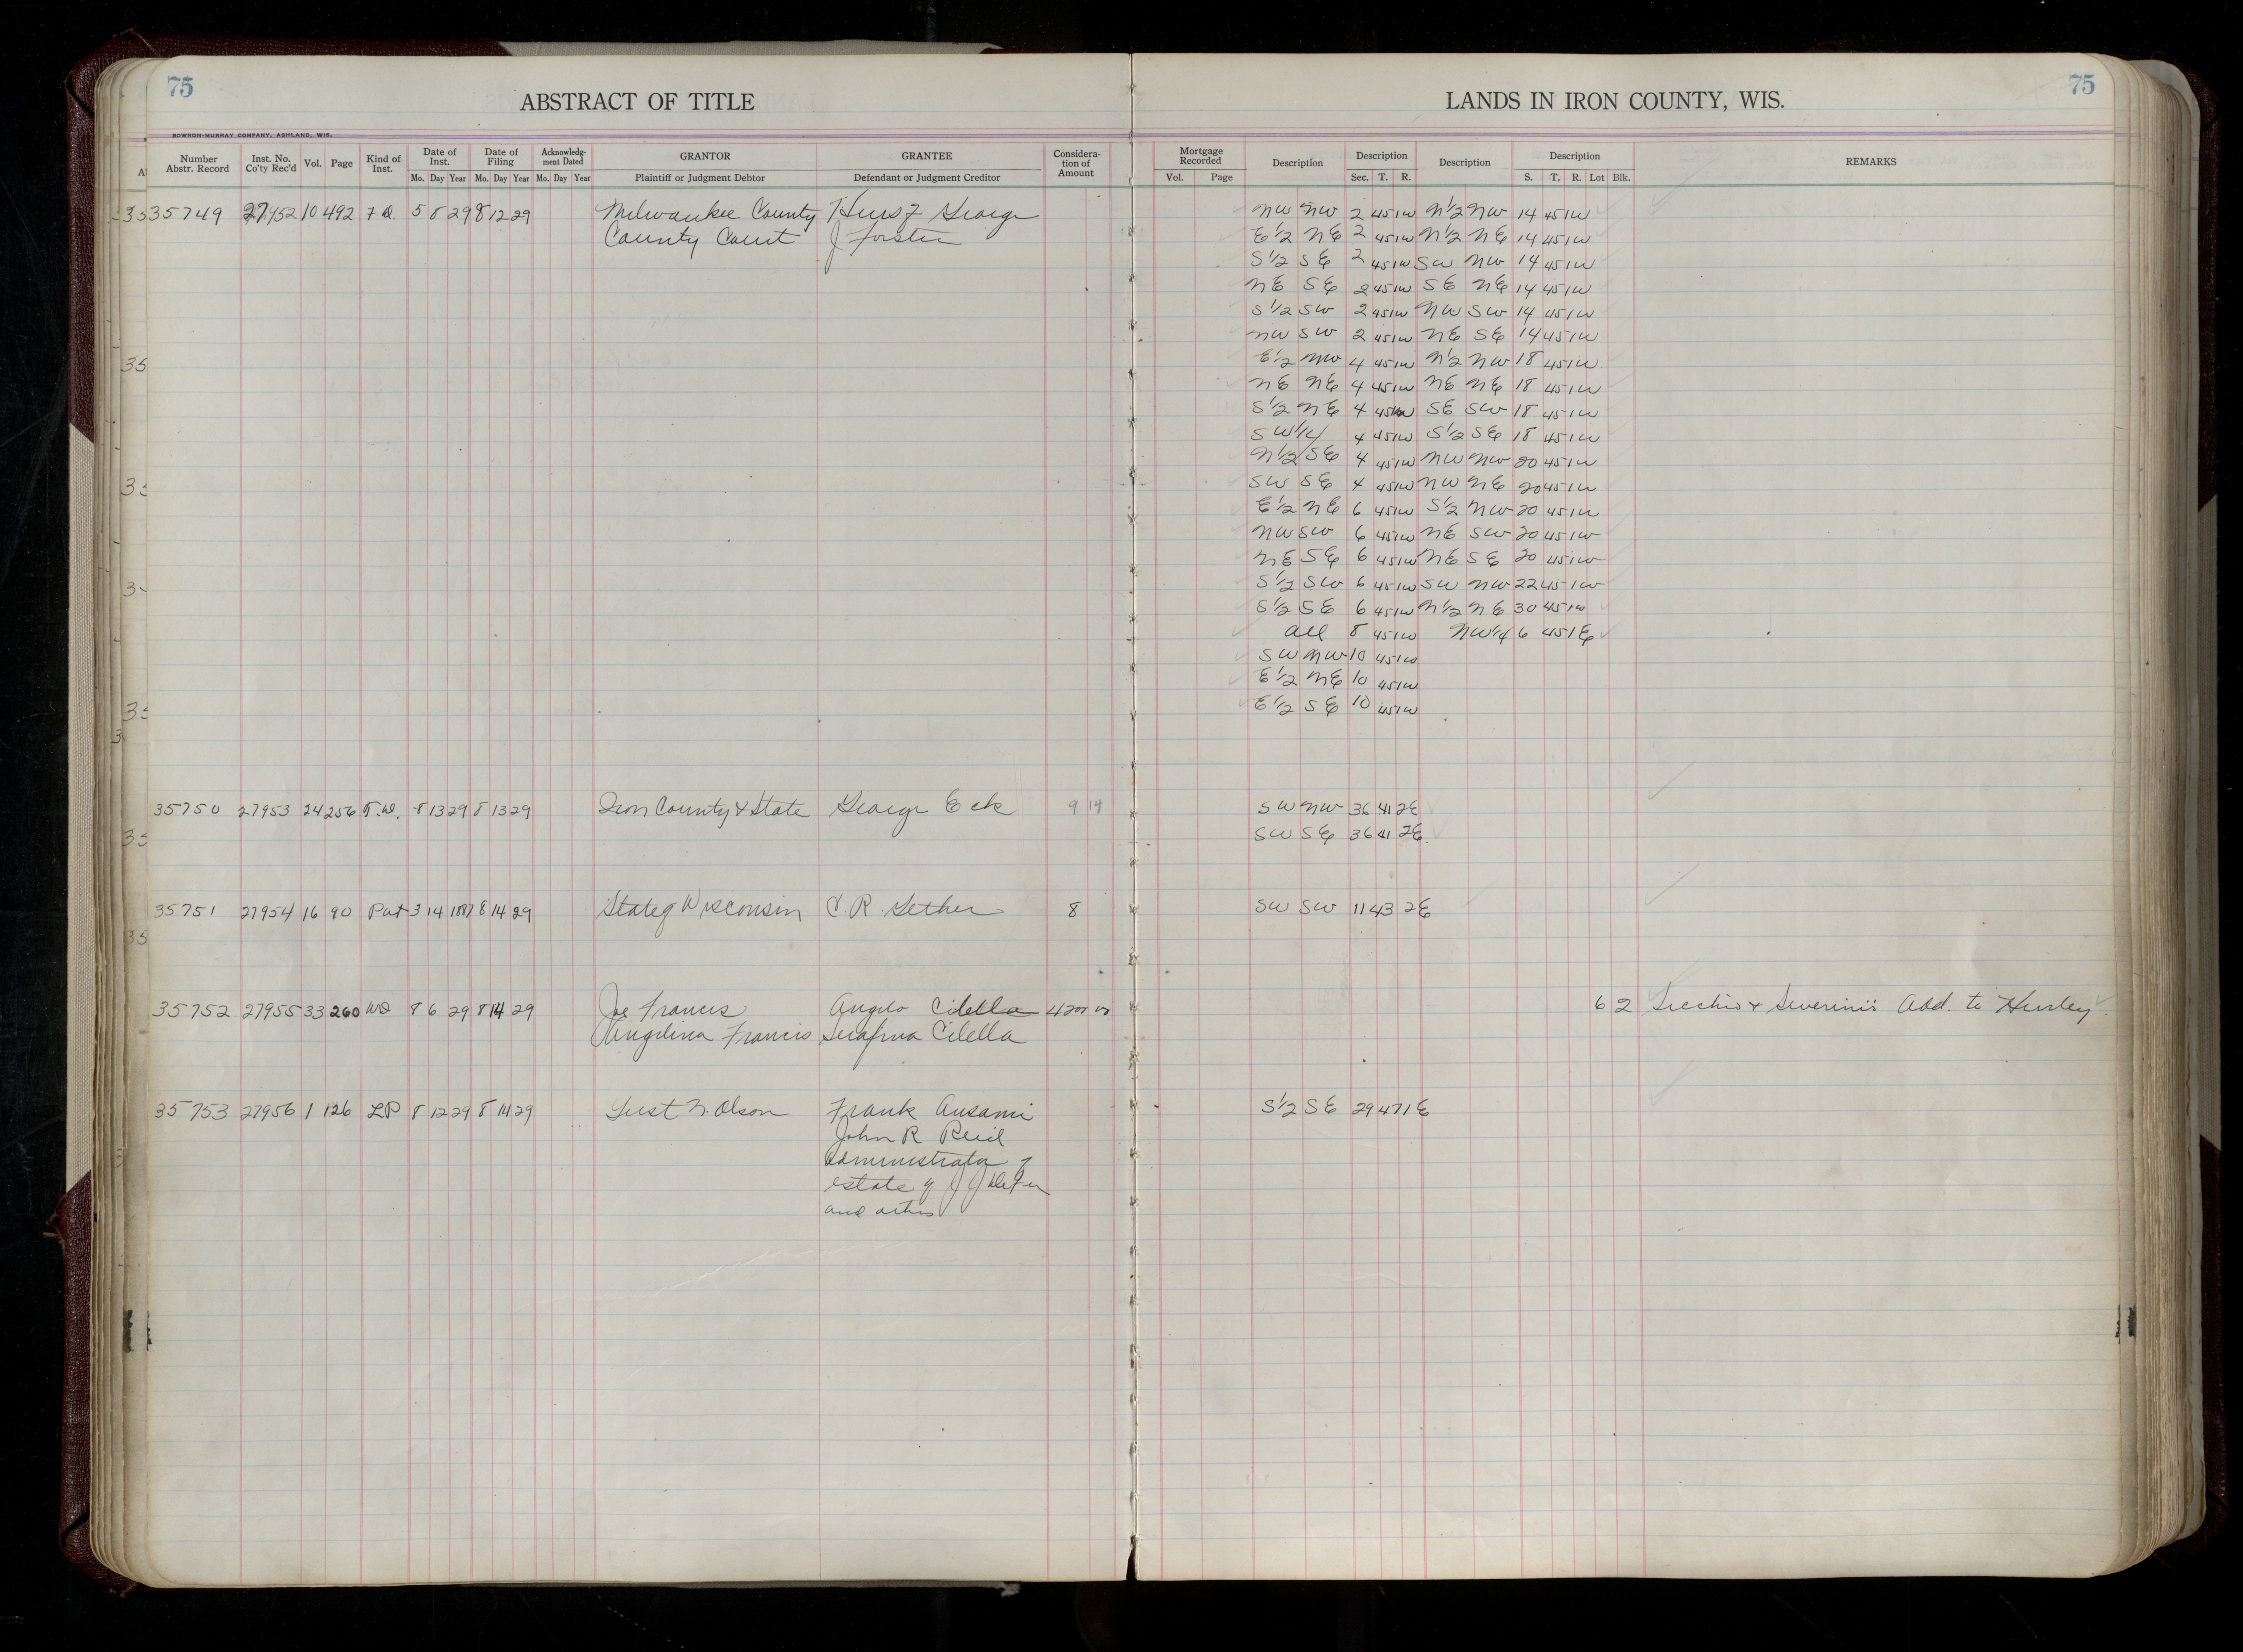 75
ABSTRACT OF TITLE
LANDS IN IRON COUNTY, WIS.
75
BOWRON-MURRAY COMPANY, ASHLAND, WIS.
Number Abstr. Record | Inst. No. Co'ty Rec'd | Vol. | Page | Kind of Inst. | Date of Inst. Mo. Day Year | Date of Filing Mo. Day Year | Acknowledg-ment Dated Mo. Day Year | GRANTOR Plaintiff or Judgment Debtor | GRANTEE Defendant or Judgment Creditor | Considera-tion of Amount | Mortgage Recorded Vol. Page | Description | Description Sec. T. R. | Description | Description S. T. R. Lot Blk. | REMARKS
35749 27952 10 492 5 8 29 8 12 29 Milwaukee County George NW NW 2 45 1W N1/2 NW 14 45 1W
County Court J Forster E1/2 NE 2 45 1W N1/2 NE 14 45 1W
S1/2 SE 2 45 1W SW NW 14 45 1W
NE SE 2 45 1W SE NE 14 45 1W
S1/2 SW 2 45 1W NW SW 14 45 1W
NW SW 2 45 1W NE SE 14 45 1W
E1/2 NW 4 45 1W N1/2 NW 18 45 1W
NE NE 4 45 1W NE NE 18 45 1W
S1/2 NE 4 45 1W SE SW 18 45 1W
SW1/4 4 45 1W S1/2 SE 18 45 1W
N1/2 SE 4 45 1W NW NW 20 45 1W
SW SE 4 45 1W NW NE 20 45 1W
E1/2 NE 6 45 1W S1/2 NW 20 45 1W
NW SW 6 45 1W NE SW 20 45 1W
NE SE 6 45 1W NE SE 20 45 1W
S1/2 SW 6 45 1W SW NW 22 45 1W
S1/2 SE 6 45 1W N1/2 NE 30 45 1W
all 8 45 1W NW1/4 6 45 1E
SW NW 10 45 1W
E1/2 NE 10 45 1W
E1/2 SE 10 45 1W
35750 27953 24 256 T.D. 8 13 29 8 13 29 Iron County & State George Eck 9 14 SW NW 36 41 2E
SW SE 36 41 2E
35751 27954 16 90 Pat 3 14 8 14 29 State of Wisconsin C. R. Gether 8 SW SW 11 43 2E
35752 27955 33 260 WD 8 6 29 8 14 29 Joe Francis Angelo Cilella 4200 00 6 2 Add. to Hurley
Angelina Francis Serafina Cilella
35753 27956 1 126 LP 8 12 29 8 14 29 Gust N. Olson Frank Ansami S1/2 SE 29 47 1E
John R Reid
administrator of
estate of J J
and others